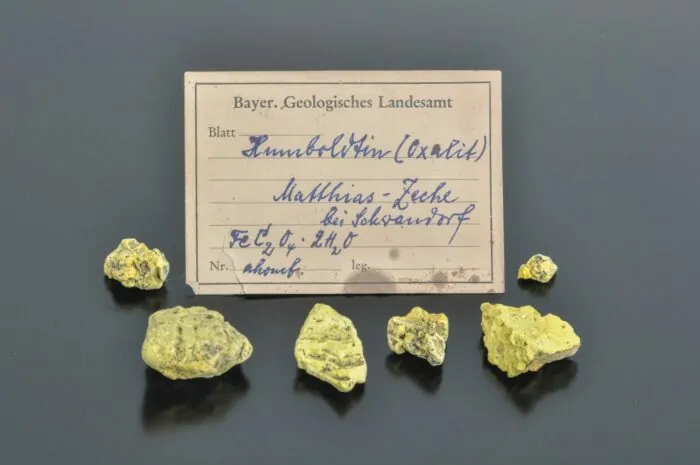 Bayer. Geologisches Landesamt
Blatt Humboldtin (Oxalit)
Matthias-Zeche
bei Schwandorf
FeC₂O₄ · 2H₂O
Nr. rhomb. leg.